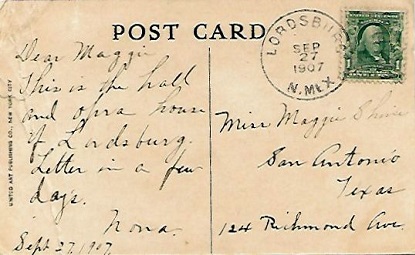 POST CARD
Dear Maggie
This is the hall
and opra house
of Lordsburg.
Letter in a few
days.
Nona.
Sept 27, 1907
UNITED ART PUBLISHING CO., NEW YORK CITY
LORDSBURG
SEP
27
1907
N. MEX
1
Miss Maggie
San Antonio
Texas
124 Richmond Ave.